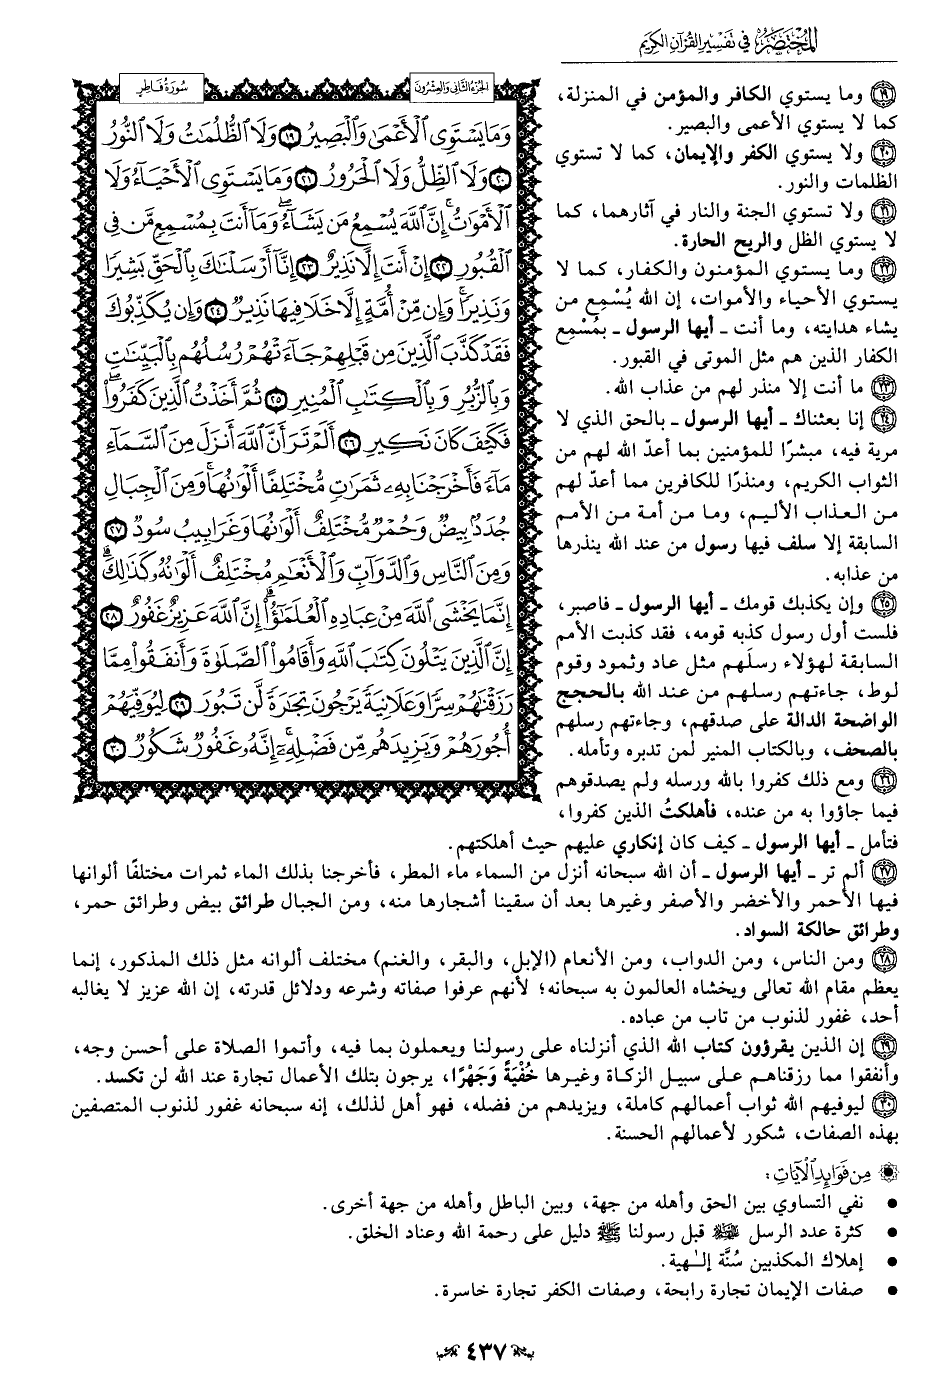 المختصر في تفسير القرآن الكريم
الجزء الثاني والعشرون
سورة فاطر
وَمَا يَسْتَوِي الْأَعْمَىٰ وَالْبَصِيرُ ١٩ وَلَا الظُّلُمَاتُ وَلَا النُّورُ
٢٠ وَلَا الظِّلُّ وَلَا الْحَرُورُ ٢١ وَمَا يَسْتَوِي الْأَحْيَاءُ وَلَا
الْأَمْوَاتُ ۚ إِنَّ اللَّهَ يُسْمِعُ مَن يَشَاءُ ۖ وَمَا أَنتَ بِمُسْمِعٍ مَّن فِي
الْقُبُورِ ٢٢ إِنْ أَنتَ إِلَّا نَذِيرٌ ٢٣ إِنَّا أَرْسَلْنَاكَ بِالْحَقِّ بَشِيرًا
وَنَذِيرًا ۚ وَإِن مِّنْ أُمَّةٍ إِلَّا خَلَا فِيهَا نَذِيرٌ ٢٤ وَإِن يُكَذِّبُوكَ
فَقَدْ كَذَّبَ الَّذِينَ مِن قَبْلِهِمْ جَاءَتْهُمْ رُسُلُهُم بِالْبَيِّنَاتِ
وَبِالزُّبُرِ وَبِالْكِتَابِ الْمُنِيرِ ٢٥ ثُمَّ أَخَذْتُ الَّذِينَ كَفَرُوا ۖ
فَكَيْفَ كَانَ نَكِيرِ ٢٦ أَلَمْ تَرَ أَنَّ اللَّهَ أَنزَلَ مِنَ السَّمَاءِ
مَاءً فَأَخْرَجْنَا بِهِ ثَمَرَاتٍ مُّخْتَلِفًا أَلْوَانُهَا ۚ وَمِنَ الْجِبَالِ
جُدَدٌ بِيضٌ وَحُمْرٌ مُّخْتَلِفٌ أَلْوَانُهَا وَغَرَابِيبُ سُودٌ ٢٧
وَمِنَ النَّاسِ وَالدَّوَابِّ وَالْأَنْعَامِ مُخْتَلِفٌ أَلْوَانُهُ كَذَٰلِكَ ۗ
إِنَّمَا يَخْشَى اللَّهَ مِنْ عِبَادِهِ الْعُلَمَاءُ ۗ إِنَّ اللَّهَ عَزِيزٌ غَفُورٌ ٢٨
إِنَّ الَّذِينَ يَتْلُونَ كِتَابَ اللَّهِ وَأَقَامُوا الصَّلَاةَ وَأَنفَقُوا مِمَّا
رَزَقْنَاهُمْ سِرًّا وَعَلَانِيَةً يَرْجُونَ تِجَارَةً لَّن تَبُورَ ٢٩ لِيُوَفِّيَهُمْ
أُجُورَهُمْ وَيَزِيدَهُم مِّن فَضْلِهِ ۚ إِنَّهُ غَفُورٌ شَكُورٌ ٣٠
١٩ وما يستوي الكافر والمؤمن في المنزلة،
كما لا يستوي الأعمى والبصير.
٢٠ ولا يستوي الكفر والإيمان، كما لا تستوي
الظلمات والنور.
٢١ ولا تستوي الجنة والنار في آثارهما، كما
لا يستوي الظل والريح الحارة.
٢٢ وما يستوي المؤمنون والكفار، كما لا
يستوي الأحياء والأموات، إن الله يُسْمِع من
يشاء هدايته، وما أنت ـ أيها الرسول ـ بمُسْمِع
الكفار الذين هم مثل الموتى في القبور.
٢٣ ما أنت إلا منذر لهم من عذاب الله.
٢٤ إنا بعثناك ـ أيها الرسول ـ بالحق الذي لا
مرية فيه، مبشرًا للمؤمنين بما أعدّ الله لهم من
الثواب الكريم، ومنذرًا للكافرين مما أعدّ لهم
من العذاب الأليم، وما من أمة من الأمم
السابقة إلا سلف فيها رسول من عند الله ينذرها
من عذابه.
٢٥ وإن يكذبك قومك ـ أيها الرسول ـ فاصبر،
فلست أول رسول كذبه قومه، فقد كذبت الأمم
السابقة لهؤلاء رسلَهم مثل عاد وثمود وقوم
لوط، جاءتهم رسلهم من عند الله بالحجج
الواضحة الدالة على صدقهم، وجاءتهم رسلهم
بالصحف، وبالكتاب المنير لمن تدبره وتأمله.
٢٦ ومع ذلك كفروا بالله ورسله ولم يصدقوهم
فيما جاؤوا به من عنده، فأهلكتُ الذين كفروا،
فتأمل ـ أيها الرسول ـ كيف كان إنكاري عليهم حيث أهلكتهم.
٢٧ ألم تر ـ أيها الرسول ـ أن الله سبحانه أنزل من السماء ماء المطر، فأخرجنا بذلك الماء ثمرات مختلفًا ألوانها
فيها الأحمر والأخضر والأصفر وغيرها بعد أن سقينا أشجارها منه، ومن الجبال طرائق بيض وطرائق حمر،
وطرائق حالكة السواد.
٢٨ ومن الناس، ومن الدواب، ومن الأنعام (الإبل، والبقر، والغنم) مختلف ألوانه مثل ذلك المذكور، إنما
يعظم مقام الله تعالى ويخشاه العالمون به سبحانه؛ لأنهم عرفوا صفاته وشرعه ودلائل قدرته، إن الله عزيز لا يغالبه
أحد، غفور لذنوب من تاب من عباده.
٢٩ إن الذين يقرؤون كتاب الله الذي أنزلناه على رسولنا ويعملون بما فيه، وأتموا الصلاة على أحسن وجه،
وأنفقوا مما رزقناهم على سبيل الزكاة وغيرها خُفْيَةً وَجَهْرًا، يرجون بتلك الأعمال تجارة عند الله لن تكسد.
٣٠ ليوفيهم الله ثواب أعمالهم كاملة، ويزيدهم من فضله، فهو أهل لذلك، إنه سبحانه غفور لذنوب المتصفين
بهذه الصفات، شكور لأعمالهم الحسنة.
من فوائد الآيات:
• نفي التساوي بين الحق وأهله من جهة، وبين الباطل وأهله من جهة أخرى.
• كثرة عدد الرسل ﷺ قبل رسولنا ﷺ دليل على رحمة الله وعناد الخلق.
• إهلاك المكذبين سُنَّة إلـٰهية.
• صفات الإيمان تجارة رابحة، وصفات الكفر تجارة خاسرة.
٤٣٧